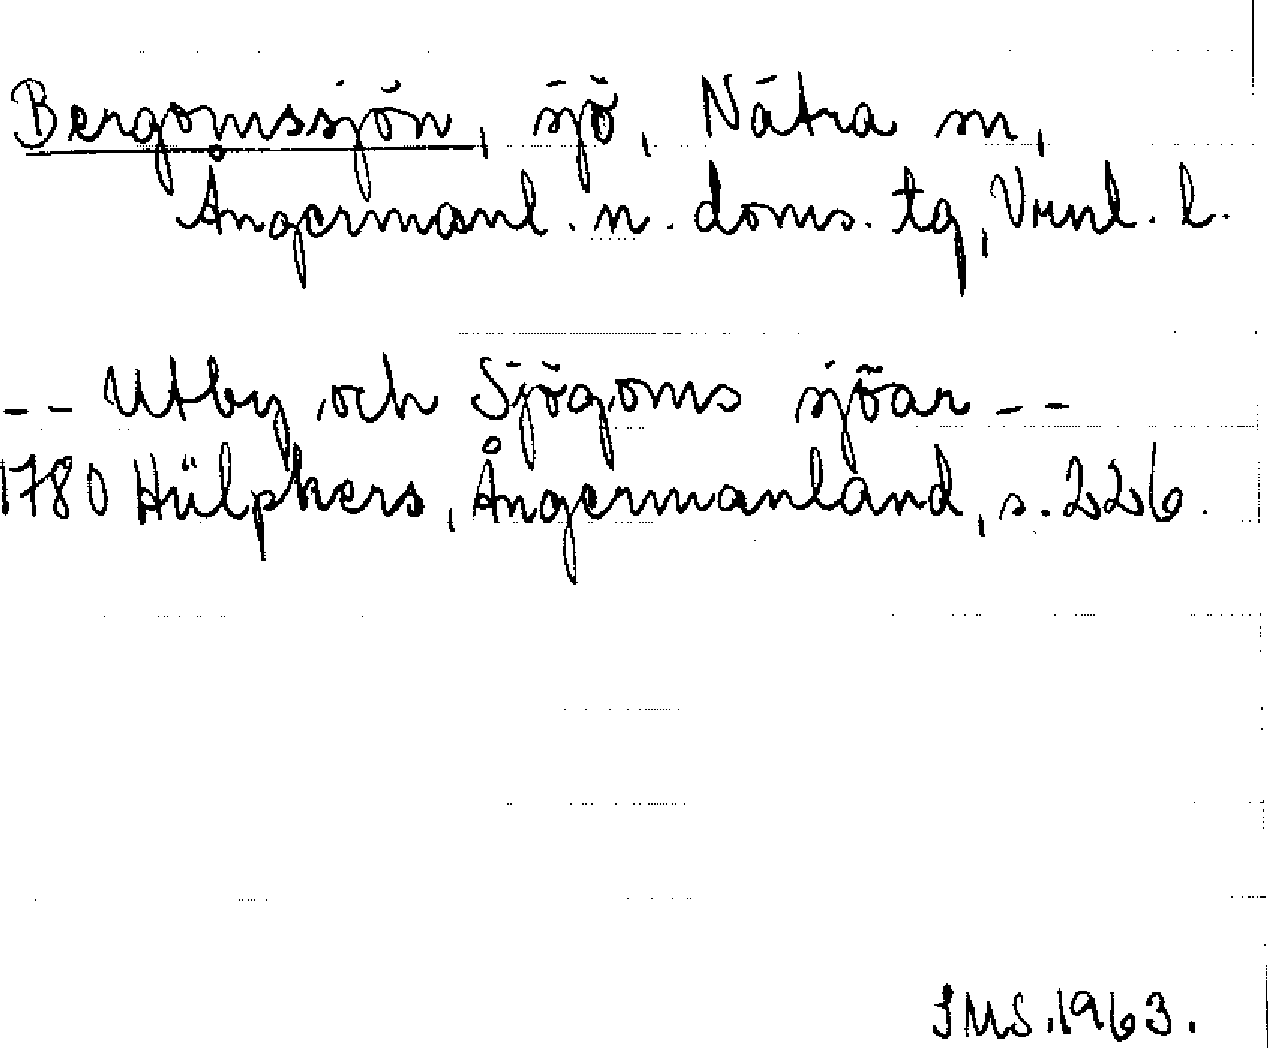 Bergomssjön, sjö, Nätra sn,
Ångermanl. n. doms. tg, Vrnl. l.
-- Utby och Sjögoms sjöar --
1780 Hülphers, Ångermanland, s. 226.
SMS. 1963.